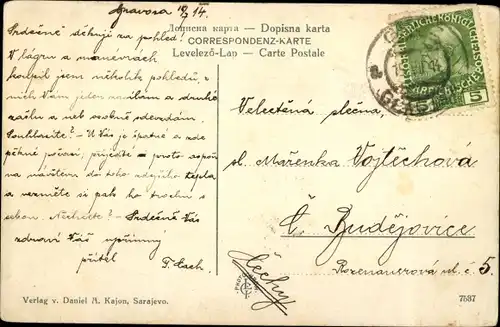 Gravosa 10/3 14.
Srdečně děkuji za pohled!
V lágru a manévrách
koupil jsem několik pohledů, z
nich Vám jeden zasílám a druhé
zašlu a neb osobně odevzdám.
Souhlasíte? - U Vás je špatné a zde
pěkné počasí, přijeďte si proto aspoň
na návštěvu do toho zdejšího tepla
a vezměte si pak ho trochu s
sebou. Nechcete? - Srdečně Vás
zdraví Váš upřímný
přítel
F. Cach.
Дописна карта — Dopisna karta
CORRESPONDENZ-KARTE
Levelező-Lap — Carte Postale
5
Velectěná slečna,
sl. Mařenka Vojtěchová
Č. Budějovice
Rozenauerova ul. č. 5.
Čechy
Verlag v. Daniel A. Kajon, Sarajevo.
7537